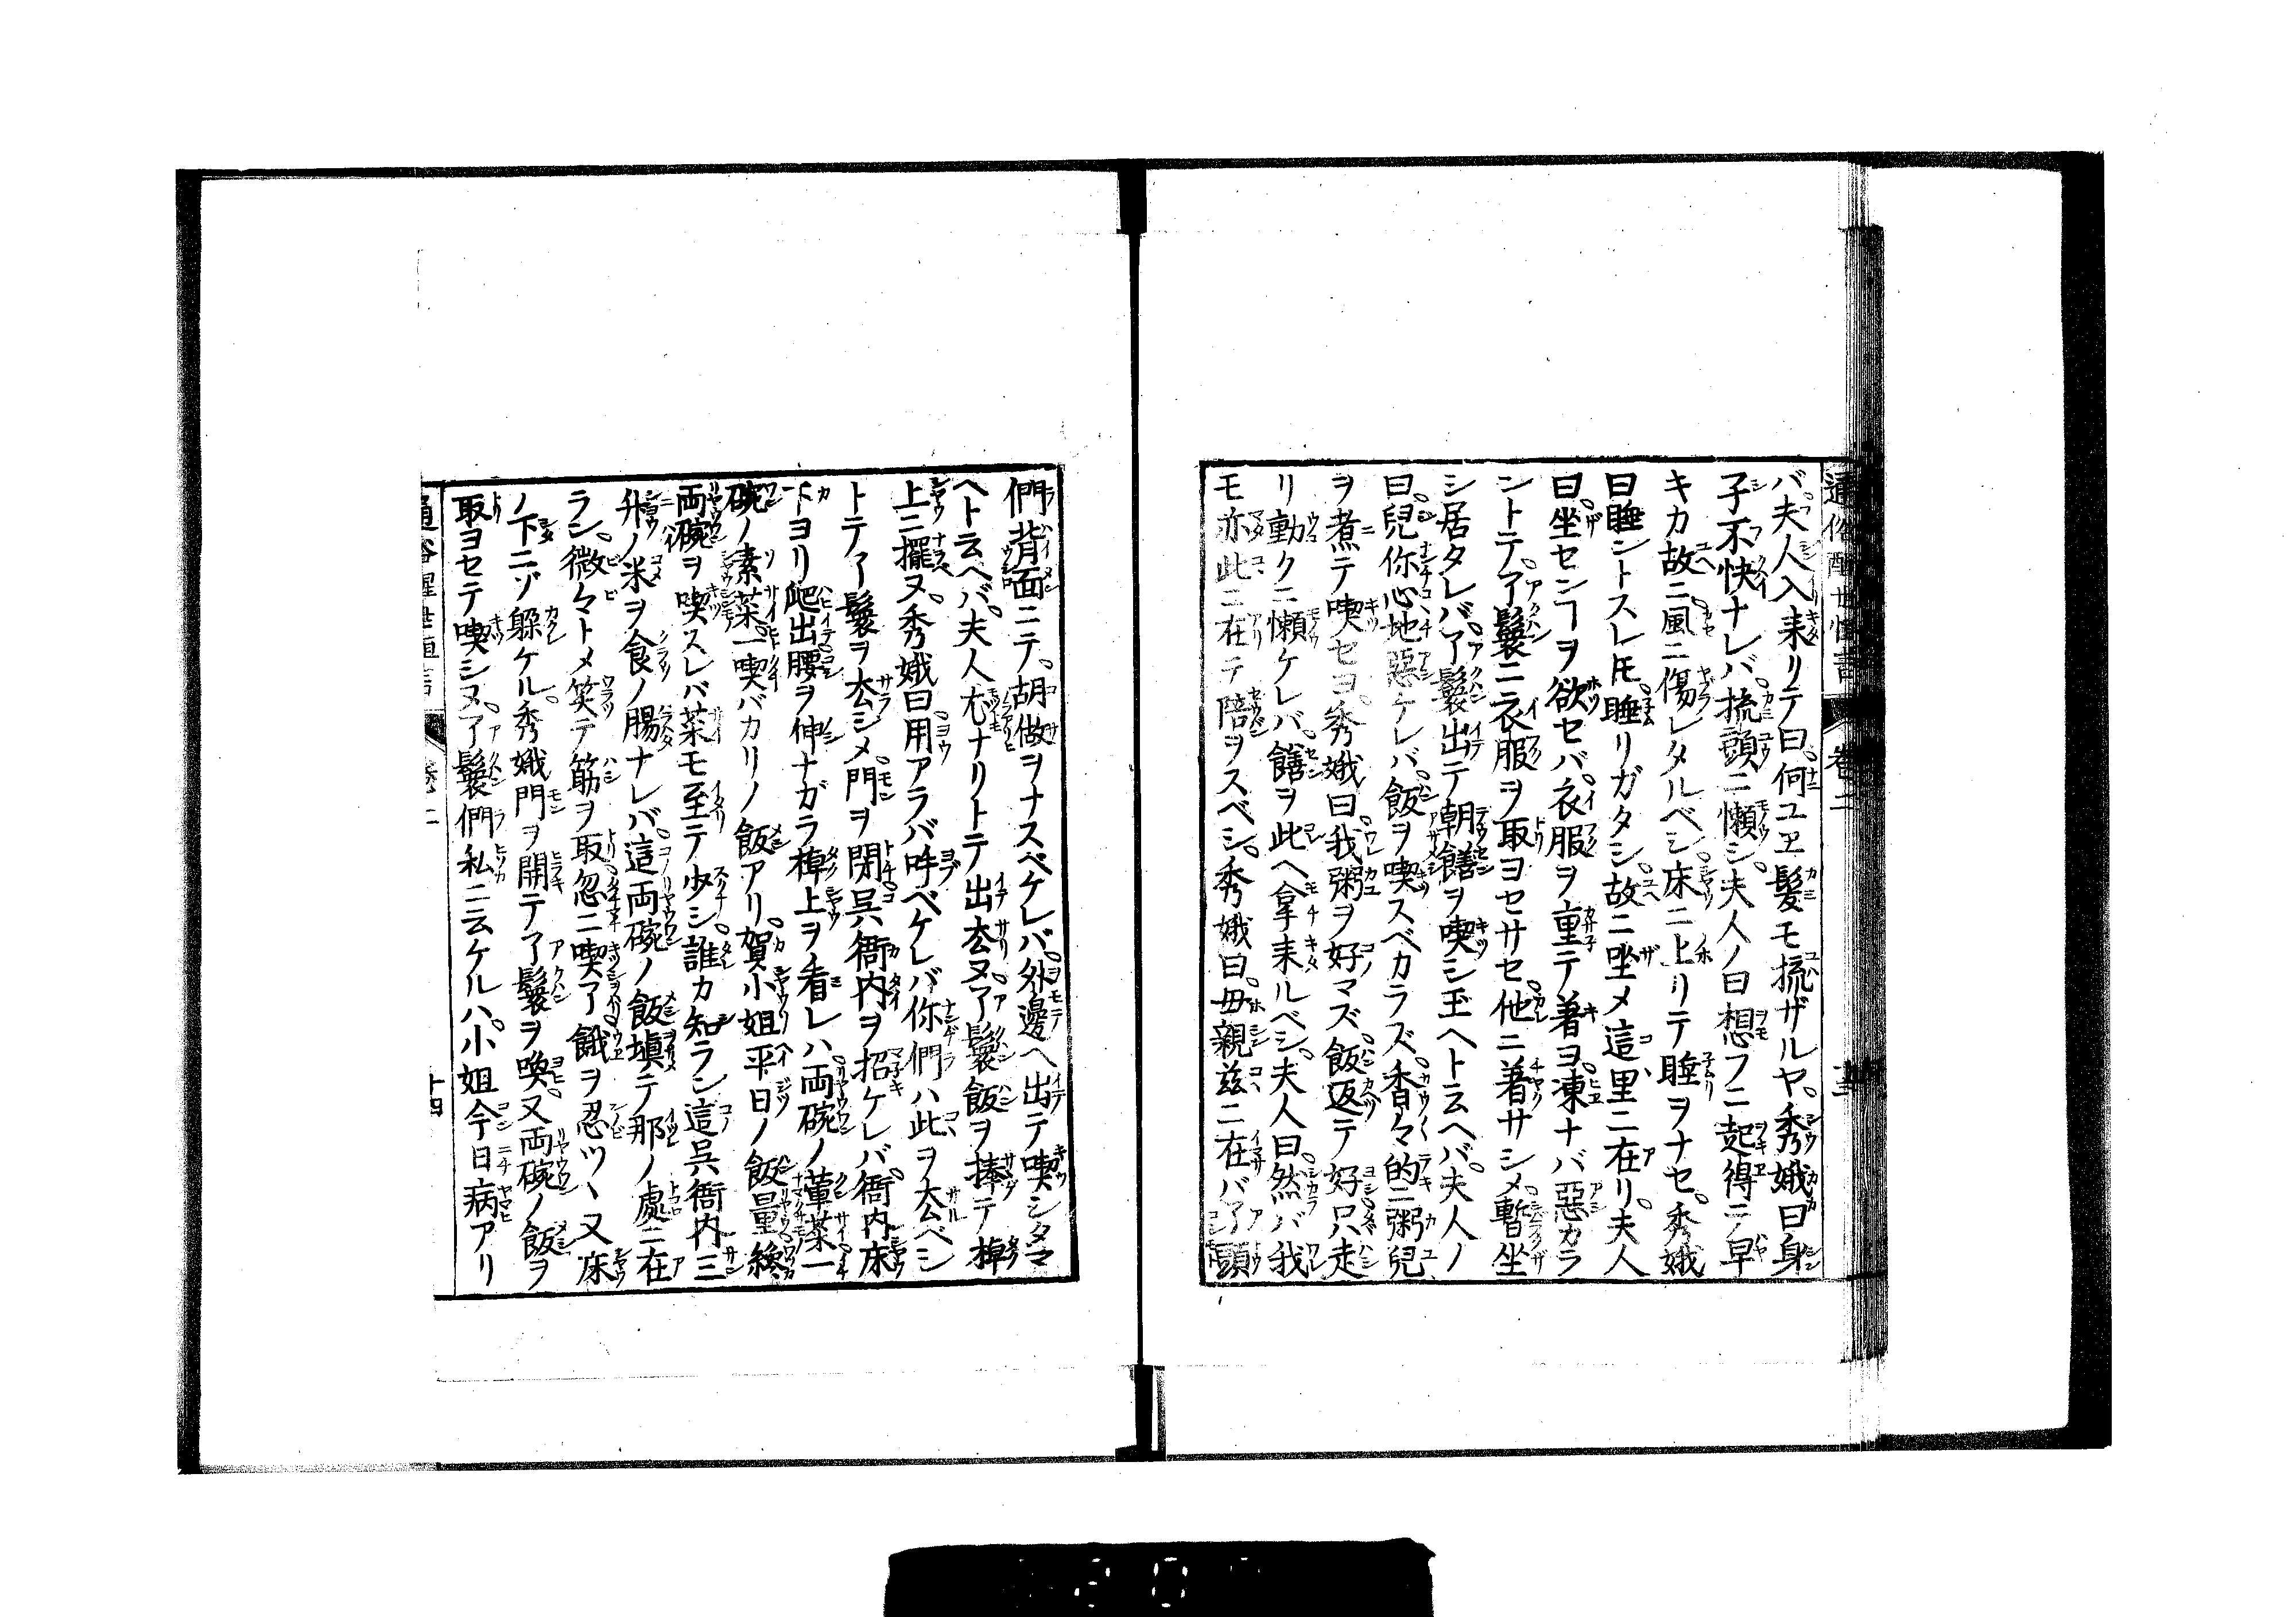 通俗醒世恒言 卷二 十三
バ夫人入来リテ曰。何ユヱ髪モ梳ザルヤ。秀娥曰身
子不快ナレバ。梳頭ニ懶シ。夫人ノ曰想フニ起得ニ早
キカ故ニ風ニ傷レタルベシ。床ニ上リテ睡ヲナセ。秀娥
曰睡ントスレ𪜈睡リガタシ。故ニ坐メ這里ニ在リ。夫人
曰坐センヿヲ欲セバ。衣服ヲ重テ着ヨ。凍ナバ惡カラ
ントテ。丫鬟ニ衣服ヲ取ヨセサセ。他ニ着サシメ。暫坐
シ居タレバ。丫鬟出テ朝饍ヲ喫シ玉ヘト云ヘバ。夫人ノ
曰。兒你心地惡ケレバ。飯ヲ喫スベカラズ。香々的ニ粥兒
ヲ煮テ喫セヨ。秀娥曰。我粥ヲ好マズ。飯返テ好。只走
リ動クニ懶ケレバ。饍ヲ此ヘ拿来ルベシ。夫人曰。然バ我
モ亦此ニ在テ陪ヲスベシ。秀娥曰。母親茲ニ在バ。丫頭
們背面ニテ。胡做ヲナスベケレバ。外邊ヘ出テ喫シタマ
ヘト云ヘバ。夫人尤ナリトテ出去ヌ。丫鬟飯ヲ捧テ棹
上ニ擺ヌ。秀娥曰用アラバ呼ベケレバ你們ハ此ヲ去ベシ
トテ丫鬟ヲ去シメ。門ヲ閉呉衙内ヲ招ケレバ。衙内床
下ヨリ爬出腰ヲ伸ナガラ棹上ヲ看レハ。両碗ノ葷菜一
碗ノ素菜。一喫バカリノ飯アリ。賀小姐平日ノ飯量纔
両碗ヲ喫スレバ菜モ至テ少シ。誰カ知ラン這呉衙内三
升ノ米ヲ食ノ腸ナレバ。這両碗ノ飯塡テ那ノ處ニ在
ラン。微々トメ笑テ筯ヲ取。忽ニ喫了餓ヲ忍ツヽ又床
ノ下ニゾ躱ケル。秀娥門ヲ開テ丫鬟ヲ喚。又両碗ノ飯ヲ
取ヨセテ喫シヌ。丫鬟們私ニ云ケルハ。小姐今日病アリ
通俗醒世恒言 卷二 十四